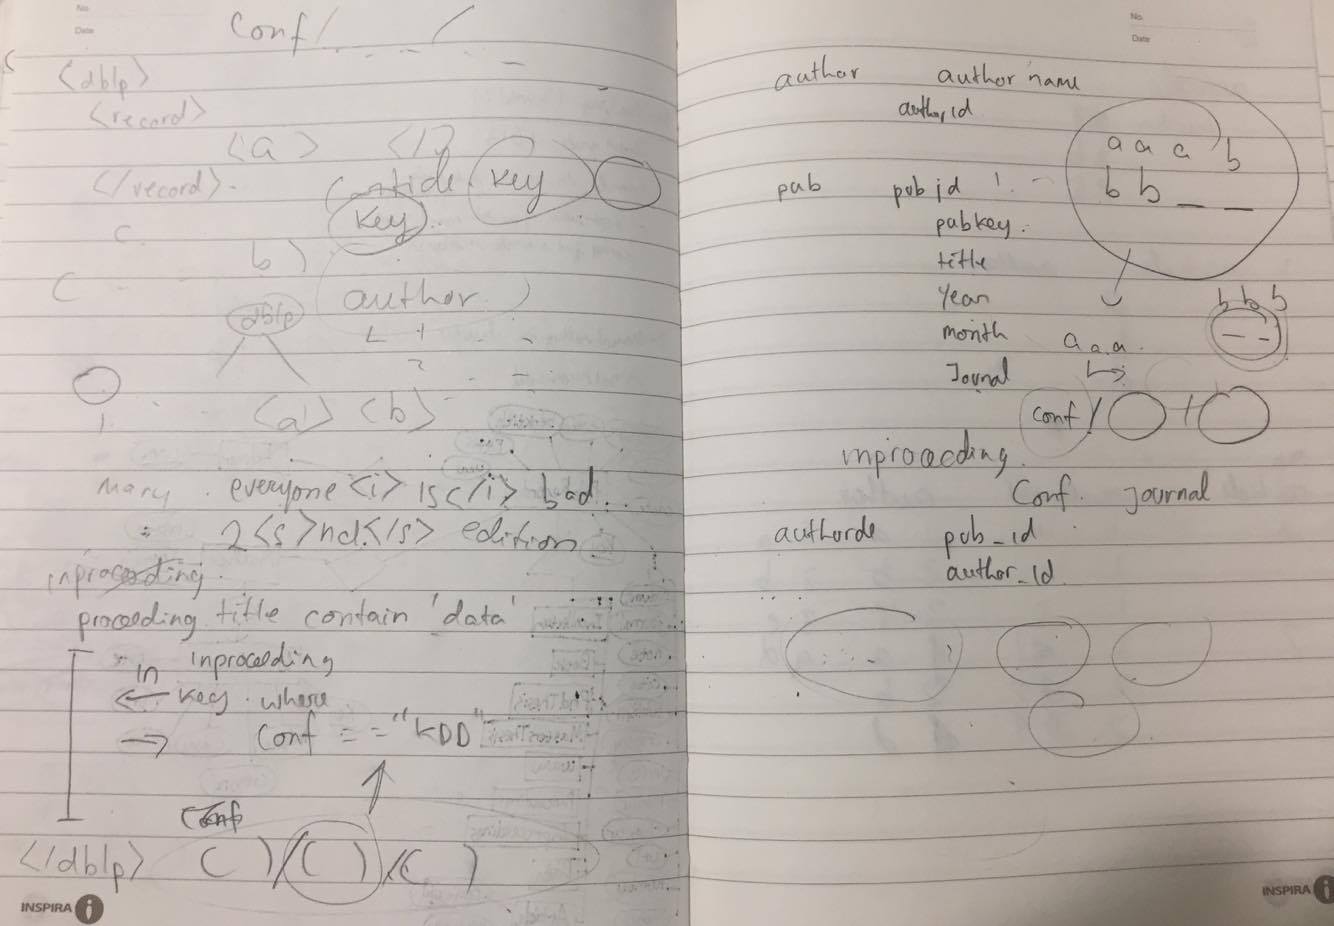 No.
Date
Conf/ /
<dblp>
<record>
<a> </1>
</record>
(article. key
key
C
b)
C
author )
dblp
1
2
<a> <b>
1
Many. everyone <i> is </i> bad.
2<s>nd</s> edition
inproceeding
proceeding title contain 'data'
in inproceeding
← key. where
→ Conf == "KDD"
Conf
</dblp> ( )/( )/( )
INSPIRA i
No.
Date
author author name
author id
a a a b
pub pub id 1. -
b b _ _
pubkey.
title
Year
b b b
month a a a.
Journal
conf/
inproceeding.
Conf. Journal
authorde pub_id
author_id
INSPIRA i